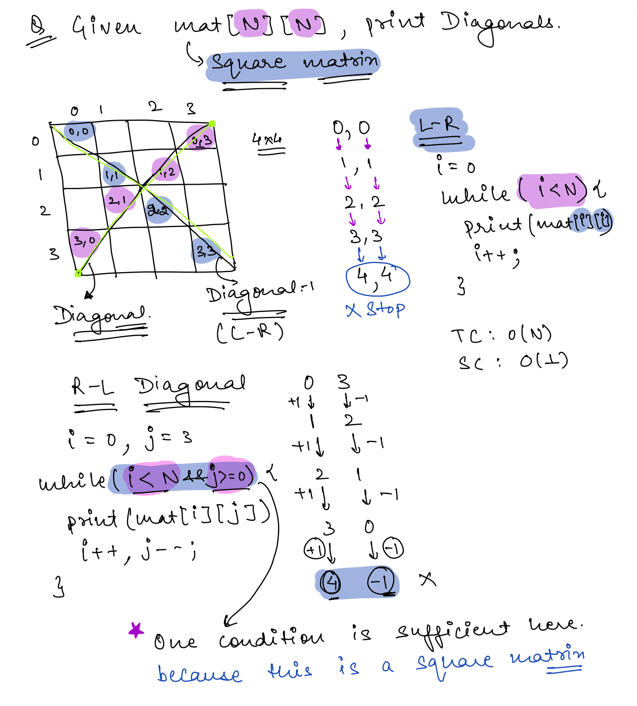 Q Given mat[N][N], print Diagonals.
Square matrix
0 1 2 3
0 0,0 0,3
1 1,1 1,2
2 2,1 2,2
3 3,0 3,3
4x4
Diagonal.
Diagonal-1
(L-R)
0,0
1,1
2,2
3,3
4,4
x Stop
L-R
i = 0
while (i<N) {
print (mat[i][i])
i++;
}
TC : O(N)
SC : O(1)
R-L Diagonal
i = 0, j = 3
while (i < N && j>=0) {
print (mat[i][j])
i++, j--;
}
0 3
+1 -1
1 2
+1 -1
2 1
+1 -1
3 0
+1 -1
4 -1 x
★ One condition is sufficient here.
because this is a square matrix